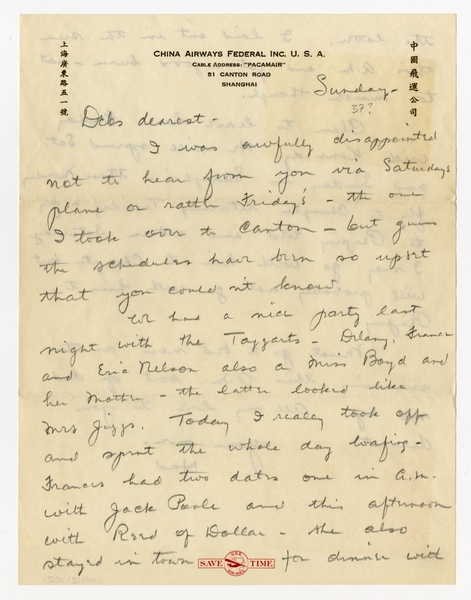 上海廣東路五一號
CHINA AIRWAYS FEDERAL INC. U. S. A.
CABLE ADDRESS: "PACAMAIR"
51 CANTON ROAD
SHANGHAI
中國飛運公司
Sunday-
37?
Debs dearest-
I was awfully disappointed
not to hear from you via Saturdays
plane or rather Friday's - the one
I took over to Canton - but guess
the schedules have been so upset
that you couldn't know.
We had a nice party last
night with the Taggarts - Delany, Francis
and Eric Nelson also a Miss Boyd and
her Mother - the latter looked like
Mrs Jiggs. Today I really took off
and spent the whole day loafing -
Francis had two dates one in A.M.
with Jack Poole and this afternoon
with Reed of Dollar - she also
stayed in town for dinner with
SAVE TIME
USE AIR MAIL